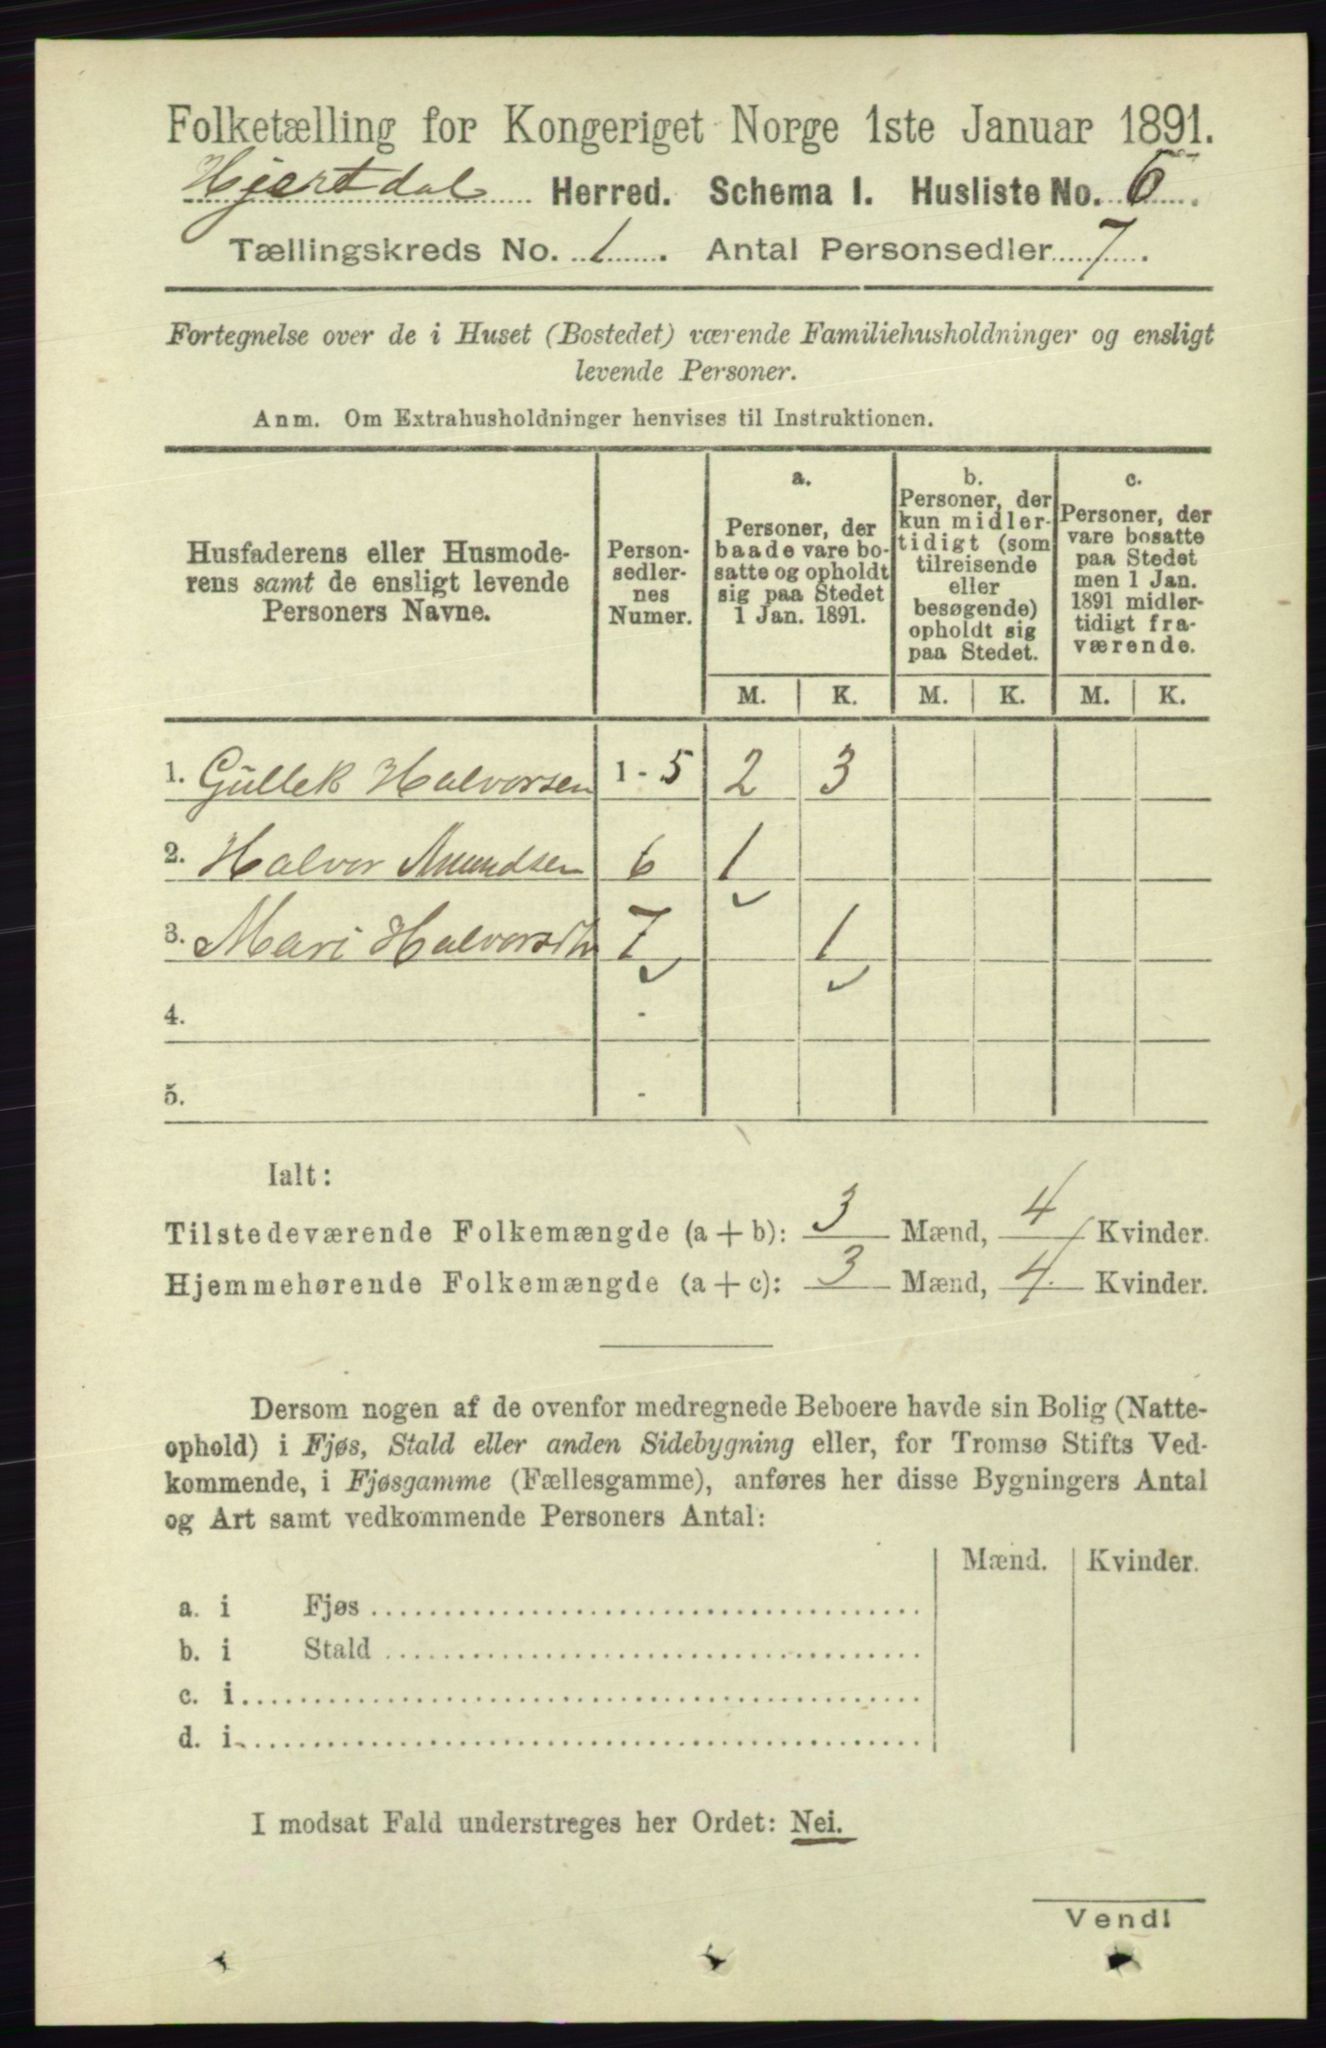 Folketælling for Kongeriget Norge 1ste Januar 1891.
Hjertdal Herred. Schema I. Husliste No. 6
Tællingskreds No. 1. Antal Personsedler 7.
Fortegnelse over de i Huset (Bostedet) værende Familiehusholdninger og ensligt
levende Personer.
Anm. Om Extrahusholdninger henvises til Instruktionen.
Husfaderens eller Husmode-
rens samt de ensligt levende
Personers Navne.
Person-
sedler-
nes
Numer.
a.
Personer, der
baade vare bo-
satte og opholdt
sig paa Stedet
1 Jan. 1891.
b.
Personer, der
kun midler-
tidigt (som
tilreisende
eller
besøgende)
opholdt sig
paa Stedet.
c.
Personer, der
vare bosatte
paa Stedet
men 1 Jan.
1891 midler-
tidigt fra-
værende.
M. K. M. K. M. K.
1. Gullek Halvorsen 1 - 5 2 3
2. Halvor Amundsen 6 1
3. Mari Halvorsdtr 7 1
4. -
5. -
Ialt:
Tilstedeværende Folkemængde (a + b): 3 Mænd, 4 Kvinder.
Hjemmehørende Folkemængde (a + c): 3 Mænd, 4 Kvinder.
Dersom nogen af de ovenfor medregnede Beboere havde sin Bolig (Natte-
ophold) i Fjøs, Stald eller anden Sidebygning eller, for Tromsø Stifts Ved-
kommende, i Fjøsgamme (Fællesgamme), anføres her disse Bygningers Antal
og Art samt vedkommende Personers Antal:
Mænd. Kvinder.
a. i Fjøs
b. i Stald
c. i
d. i
I modsat Fald understreges her Ordet: Nei.
Vend!